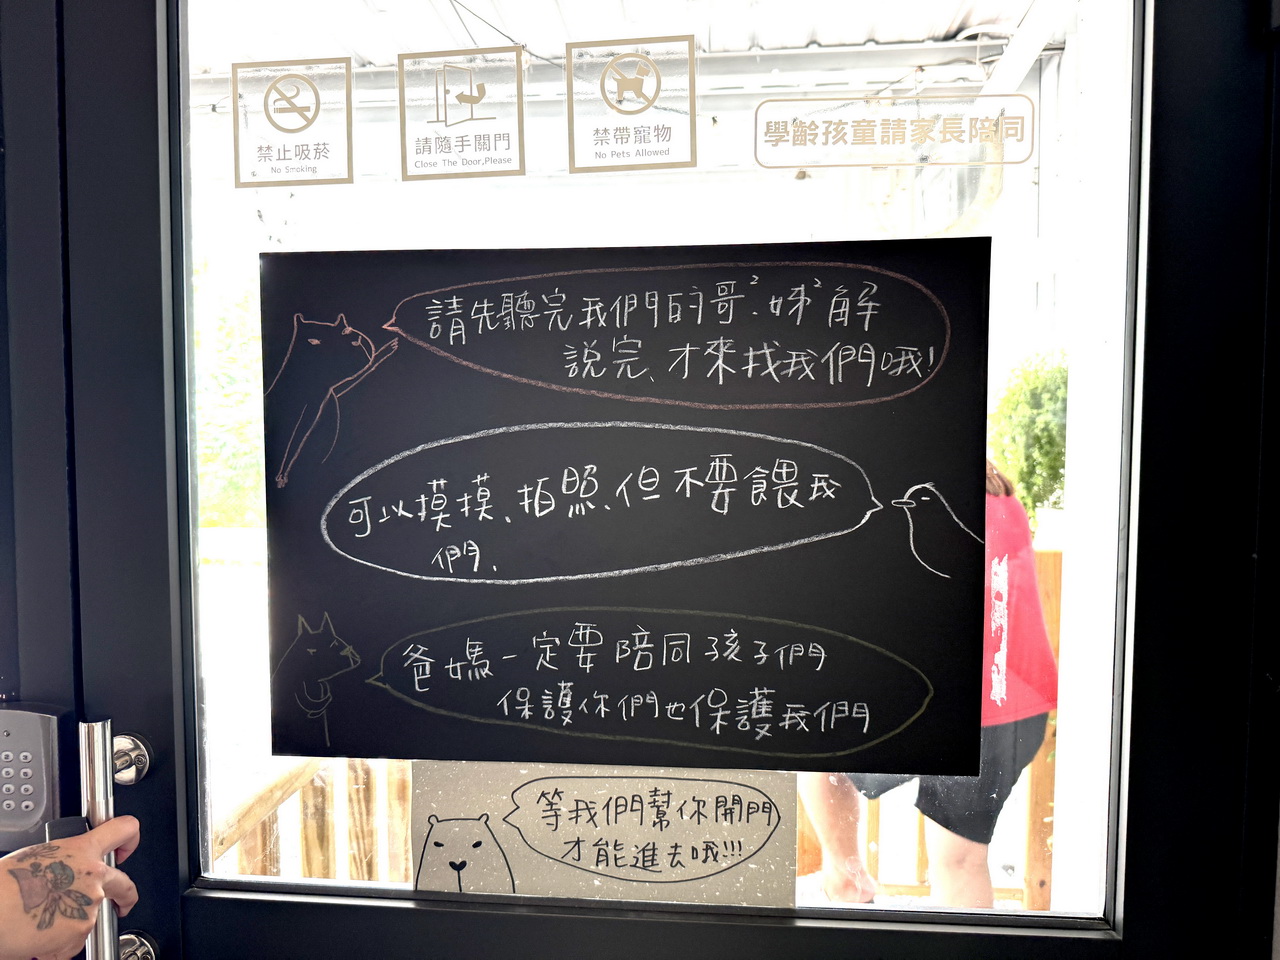 禁止吸菸
No Smoking
請隨手關門
Close The Door,Please
禁帶寵物
No Pets Allowed
學齡孩童請家長陪同
請先聽完我們的哥²、姊²解
說完、才來找我們哦!
可以摸摸、拍照、但不要餵我
們、
爸媽一定要陪同孩子們
保護你們也保護我們
等我們幫你開門
才能進去哦!!!